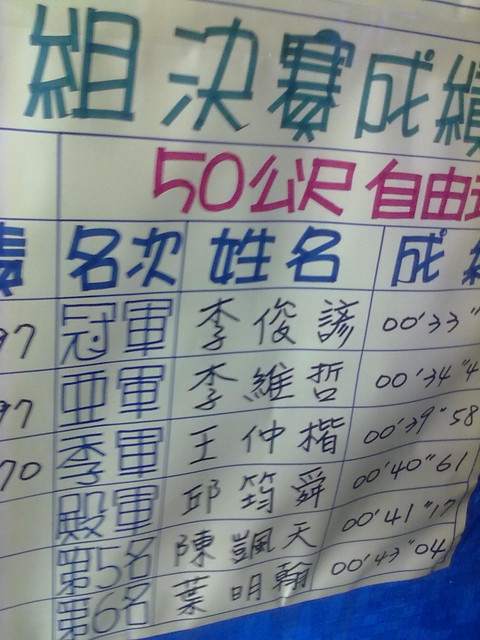 組決賽成績
50公尺自由式
績 名次 姓名 成績
97 冠軍 李俊諺 00'33"
97 亞軍 李維哲 00'34"4
70 季軍 王仲楷 00'39"58
殿軍 邱筠舜 00'40"61
第5名 陳颽天 00'41"17
第6名 葉明翰 00'43"04